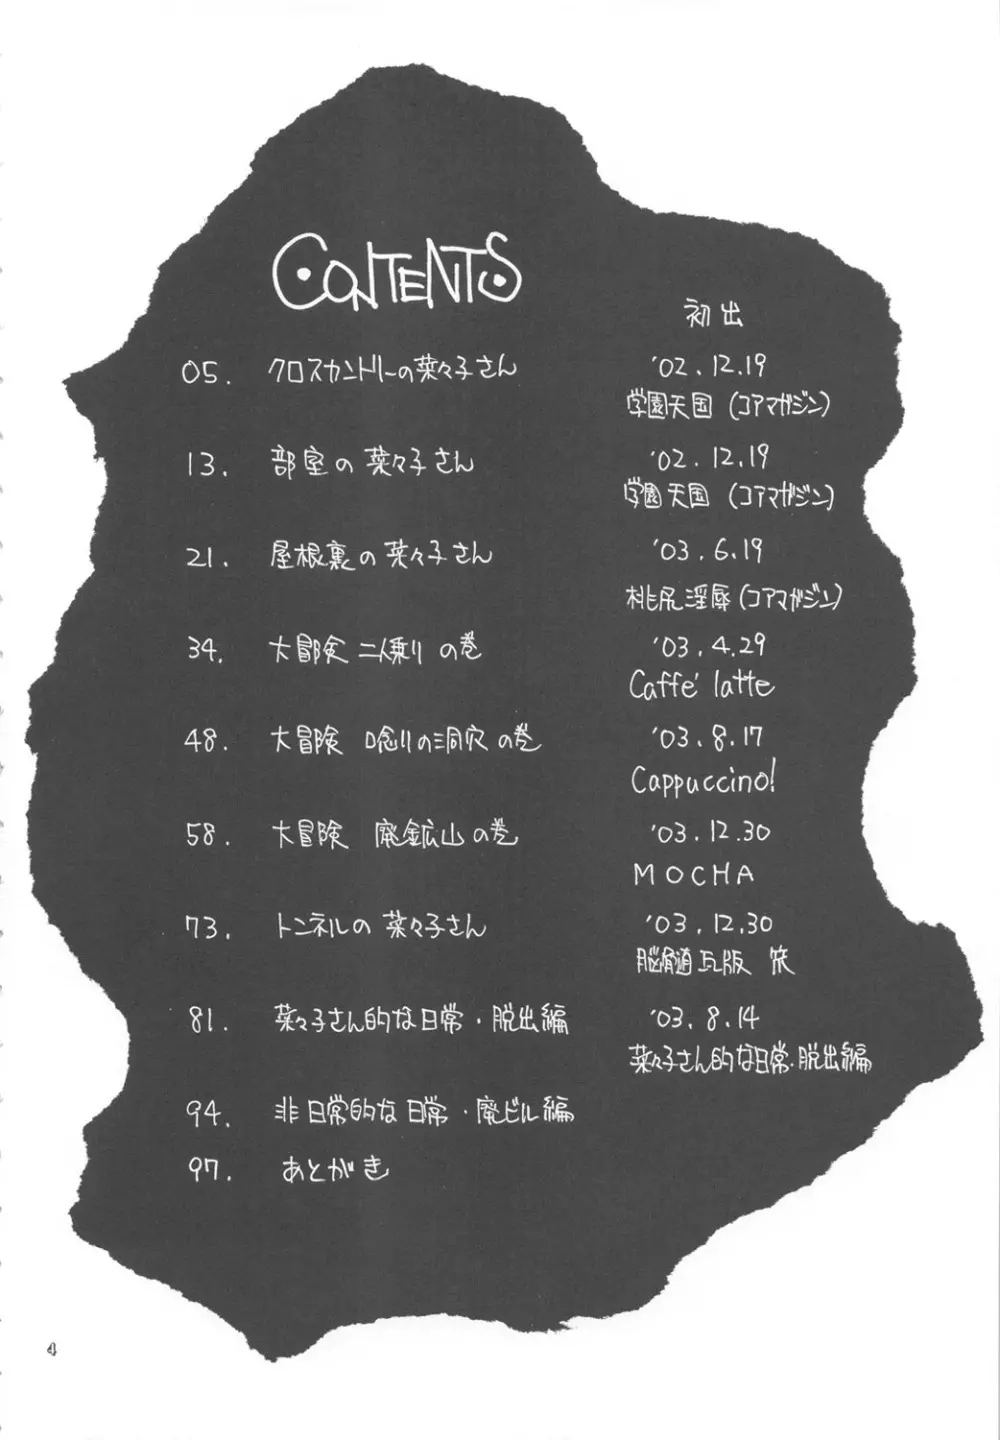 CONTENTS
初出
05. クロスカントリーの菜々子さん '02.12.19
学園天国 (コアマガジン)
13. 部室の菜々子さん '02.12.19
学園天国 (コアマガジン)
21. 屋根裏の菜々子さん '03.6.19
桃尻淫辱 (コアマガジン)
34. 大冒険 二人乗り の巻 '03.4.29
Caffe' latte
48. 大冒険 唸りの洞穴 の巻 '03.8.17
Cappuccino!
58. 大冒険 廃鉱山の巻 '03.12.30
MOCHA
73. トンネルの 菜々子さん '03.12.30
脳髄瓦版 笑
81. 菜々子さん的な日常・脱出編 '03.8.14
菜々子さん的な日常・脱出編
94. 非日常的な日常・廃ビル編
97. あとがき
4